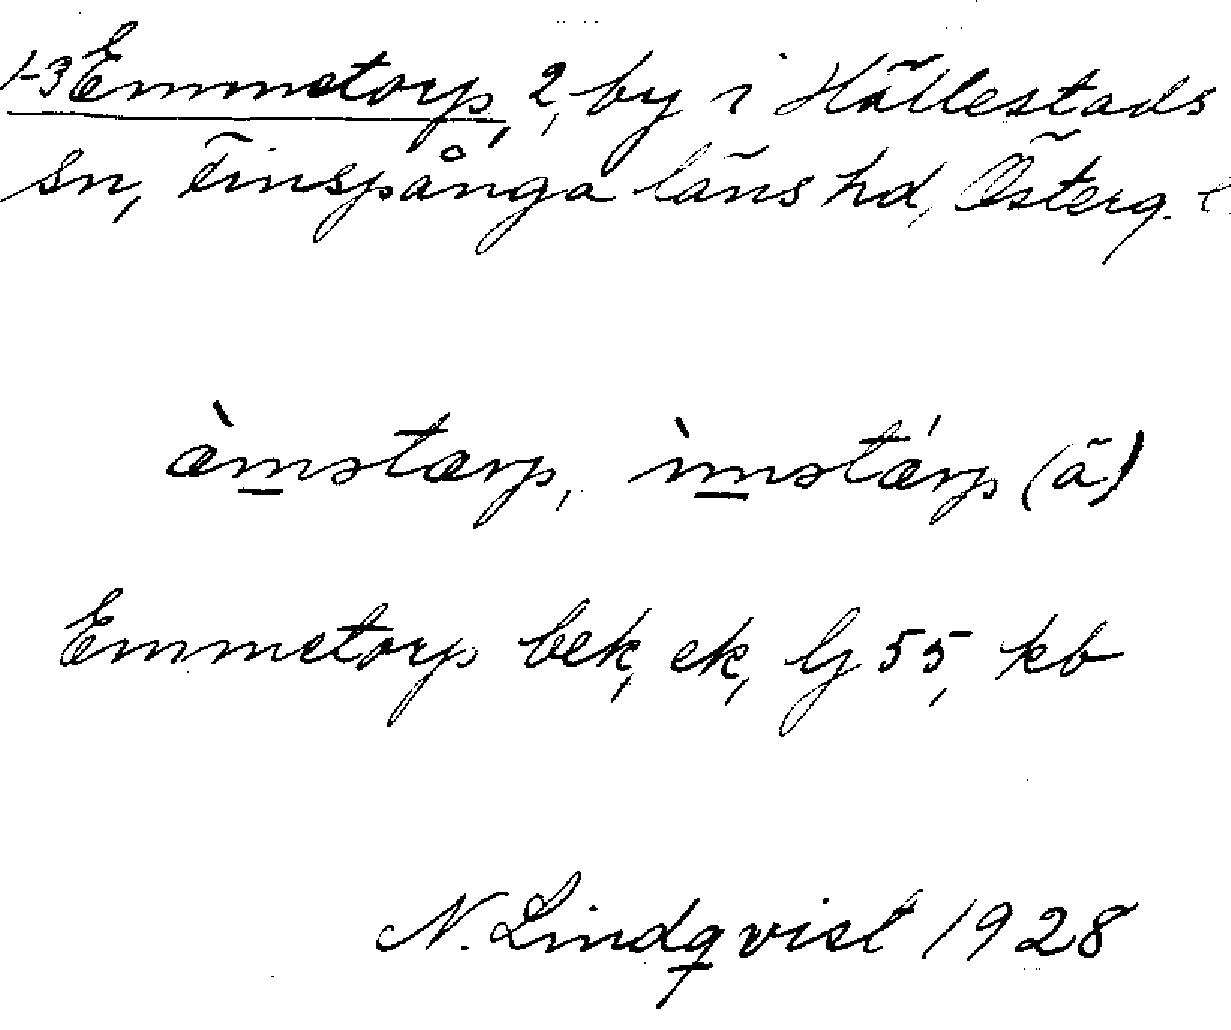 1-3 Emmetorp, 2, by i Hällestads
sn, Finspånga läns hd, Österg. l
æ̀m̲ətærp, ìm̲ətǽrp (ä)
Emmetorp bek, ek, lj 55, kb
N. Lindqvist 1928